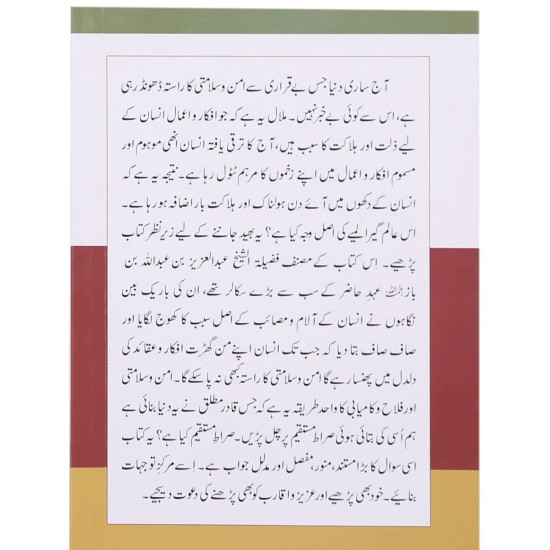 آج ساری دنیا جس بے قراری سے امن و سلامتی کا راستہ ڈھونڈ رہی
ہے، اس سے کوئی بے خبر نہیں۔ ملال یہ ہے کہ جو افکار و اعمال انسان کے
لیے ذلت اور ہلاکت کا سبب ہیں، آج کا ترقی یافتہ انسان انھی موہوم اور
مسموم افکار و اعمال میں اپنے زخموں کا مرہم ٹٹول رہا ہے۔ نتیجہ یہ ہے کہ
انسان کے دکھوں میں آئے دن ہولناک اور ہلاکت بار اضافہ ہو رہا ہے۔
اس عالم گیر المیے کی اصل وجہ کیا ہے؟ یہ بھید جاننے کے لیے زیر نظر کتاب
پڑھیے۔ اِس کتاب کے مصنف فضیلۃ الشیخ عبدالعزیز بن عبداللہ بن
باز رحمہ اللہ عہدِ حاضر کے سب سے بڑے سکالر تھے، ان کی باریک بین
نگاہوں نے انسان کے آلام و مصائب کے اصل سبب کا کھوج لگایا اور
صاف صاف بتا دیا کہ جب تک انسان اپنے من گھڑت افکار و عقائد کی
دلدل میں پھنسا رہے گا امن و سلامتی کا راستہ کبھی نہ پا سکے گا۔ امن و سلامتی
اور فلاح و کامیابی کا واحد طریقہ یہ ہے کہ جس قادر مطلق نے یہ دنیا بنائی ہے
ہم اُسی کی بتائی ہوئی صراطِ مستقیم پر چل پڑیں۔ صراطِ مستقیم کیا ہے؟ یہ کتاب
اسی سوال کا بڑا مستند، منور، مفصل اور مدلل جواب ہے۔ اِسے مرکزِ توجہات
بنائیے۔ خود بھی پڑھیے اور عزیز و اقارب کو بھی پڑھنے کی دعوت دیجیے۔